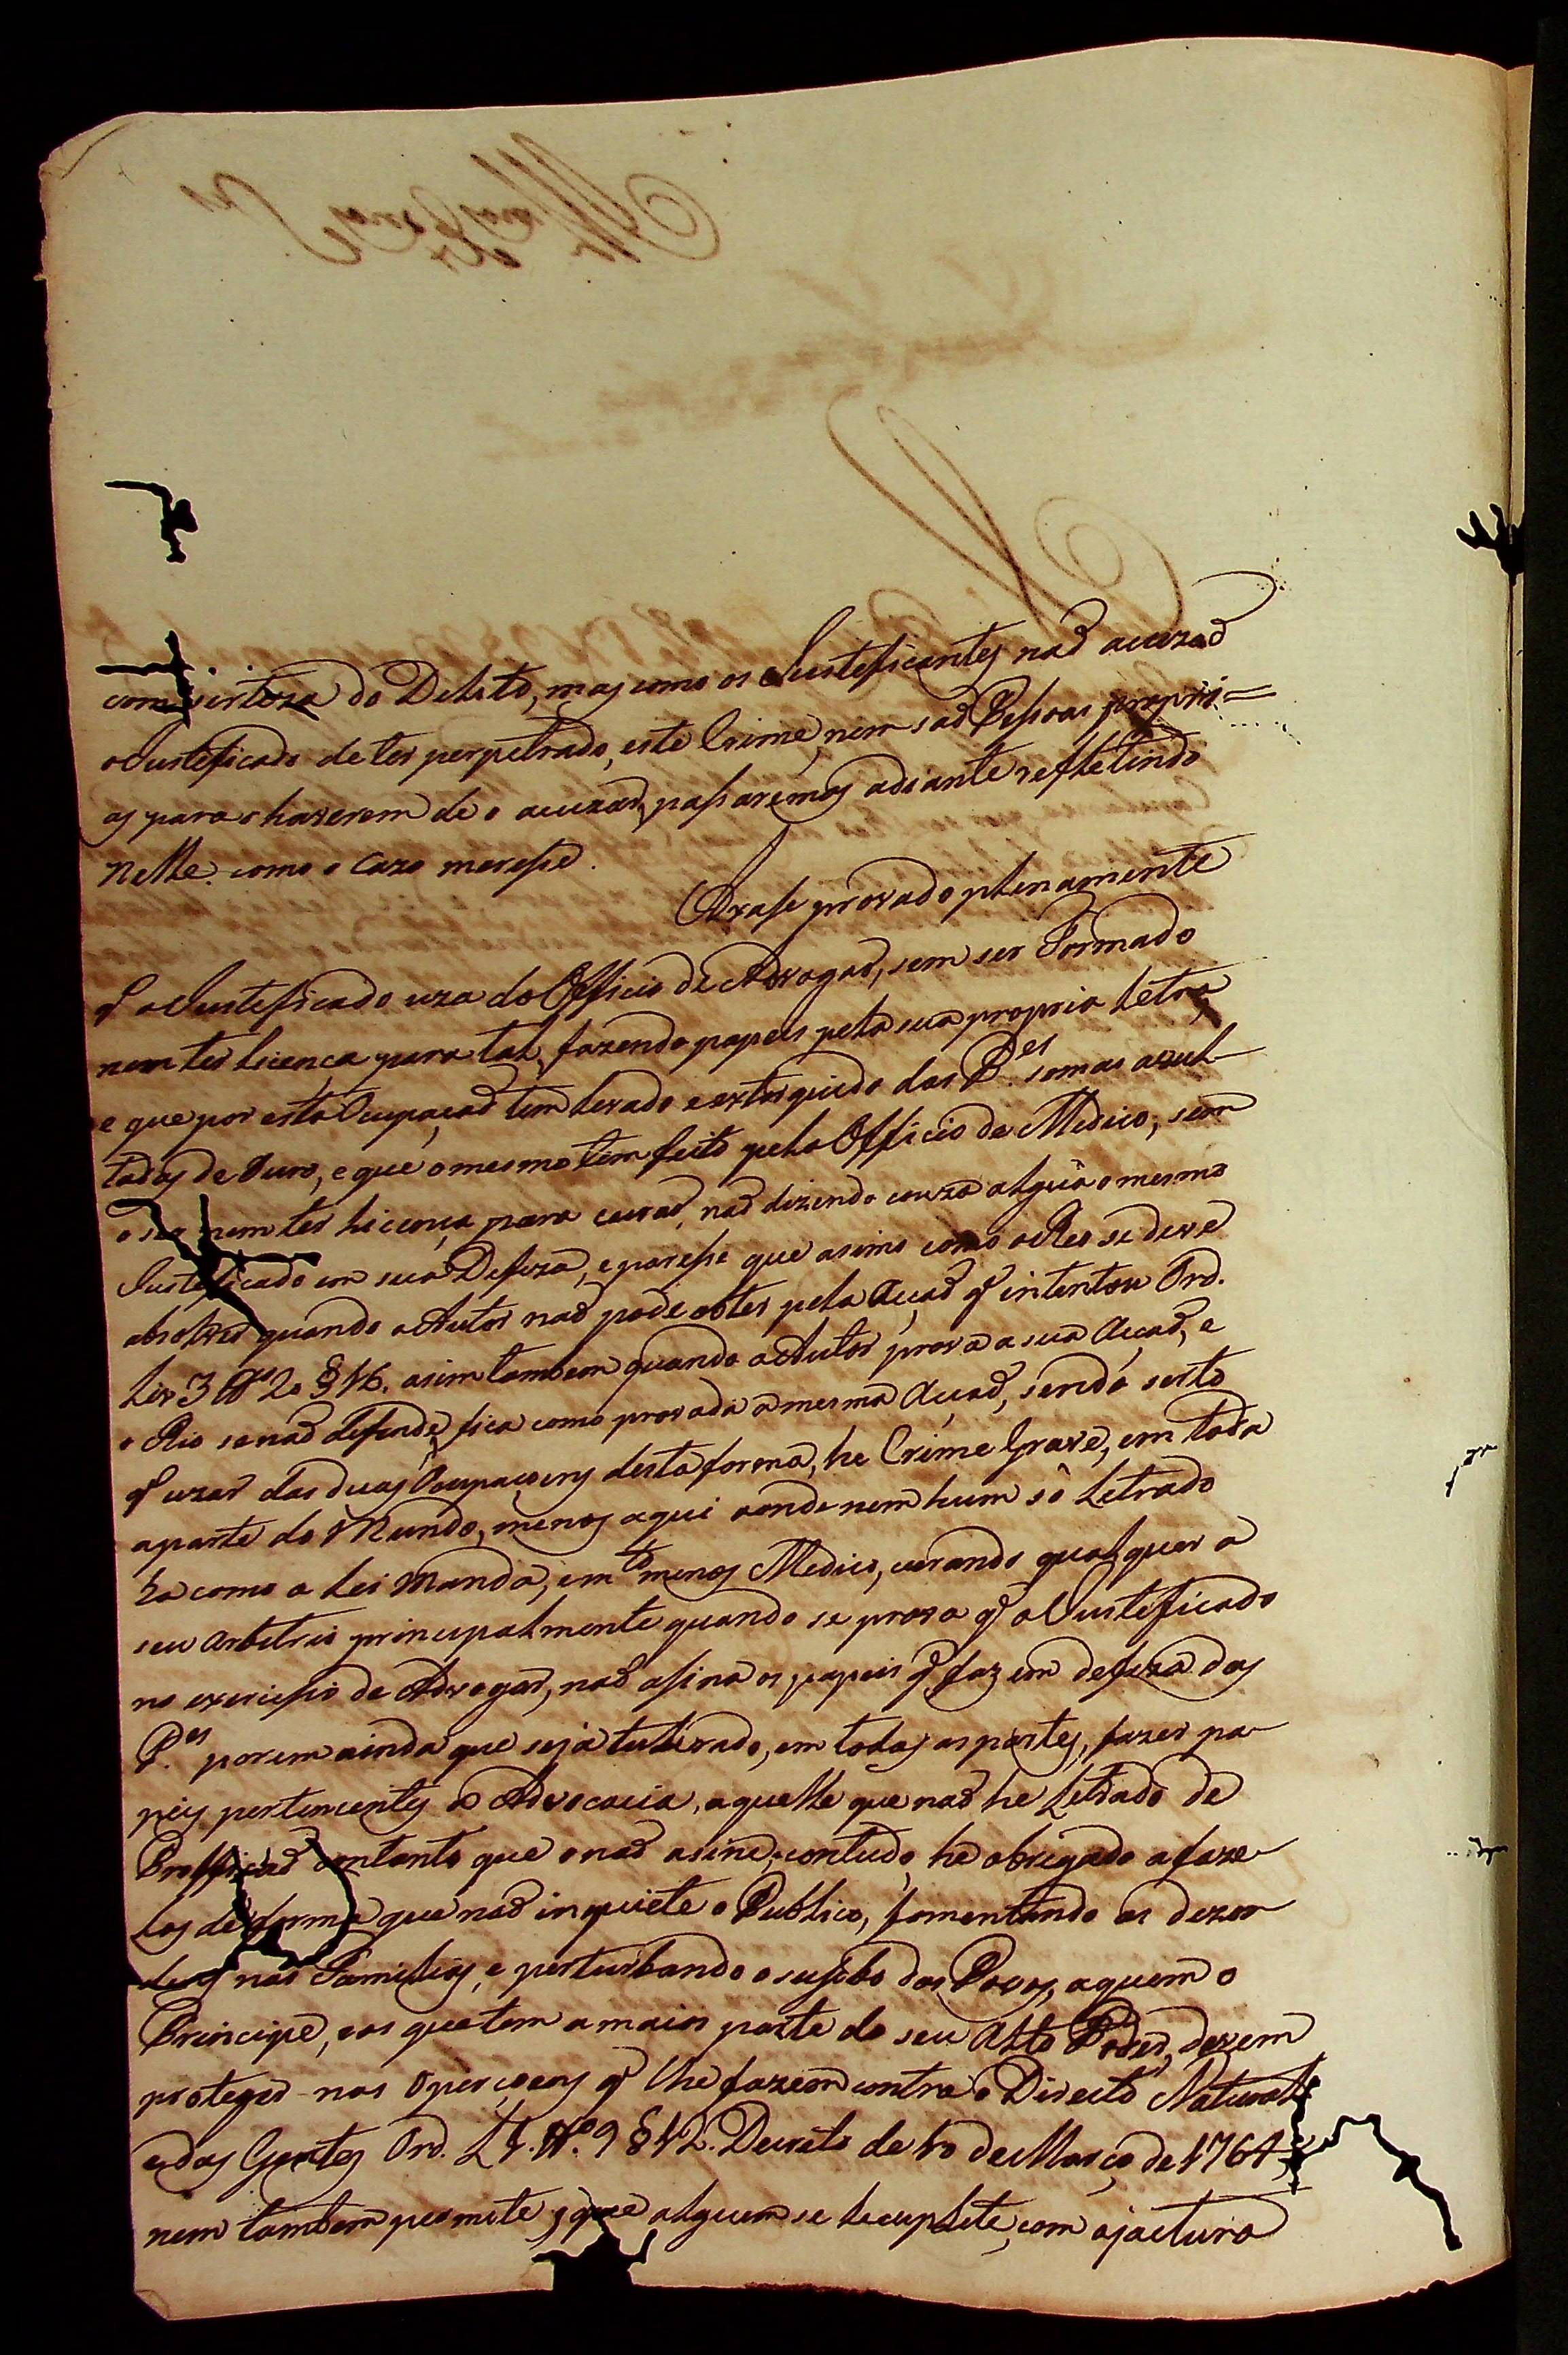 com serteza do Delito, mas como os Justeficantes naõ acuzaõ
o Justeficado de ter perpetrado, este Crime, nem saõ Pessoas propri=
as para o haverem de o acuzar, passaremos adiante refletindo
nelle como o Cazo meresse.
Axase provado plenamente
q̃ o Justeficado uza do Officio de Advogar, sem ser Formado
nem ter licença para tal, fazendo papeis pela sua propria Letra,
e que por esta Ocupaçaõ tem levado e extorquido das P.es somas avul-
tadas de Ouro, e que o mesmo tem feito pelo Officio de Medico, sem
o ser nem ter licença para curar, naõ dizendo couza algũa o mesmo
Justeficado em sua Defeza, e paresse que asim como o Reo se deve
absolver quando o Autor naõ pode obter pela Acçaõ q̃ intentou Ord.
Liv 3 tt.o 20 § 16. asim tambem quando o Autor prova a sua Acçaõ, e
o Rio se naõ defende, fica como provada a mesma Acçaõ, sendo serto
q̃ uzar das duas Ocupaçoens desta forma, he Crime Grave, em toda
a parte do Mundo, menos aqui aonde nem hum só Letrado
há como a Lei manda, e m.to menos Medico, curando qualquer a
seu arbitrio principalmente quando se prova q̃ o Justeficado
no exercissio de Advogar, naõ asina os papeis q̃ faz em defeza das
P.es porem ainda que seja tulerado, em todas as partes, fazer pa-
peis pertencentes a Advocacia, aquelle que naõ he Letrado de
Proffissaõ contanto que o naõ asine, contudo, he obrigado a faze-
los de forma que naõ inquiete o Publico, fomentando as dezor
dens nas Familias, e perturbando o susebo dos Povos, a quem o
Principe, e os que tem a maior parte do seu Alto Poder, devem
proteger nas Opreçoens q̃ lhe fazem contra o Direito Natural,
e das Gentes Ord. L 4. tt.o 9 § 12. Decreto de 10 de Março de 1764,
nem tambem permite, que alguem se locuplete, com a jactura